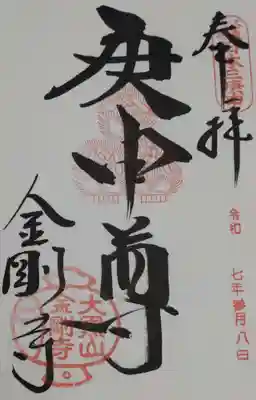 奉拝
令和 七年参月八日
庚申尊
金剛寺
大黒山
金剛寺